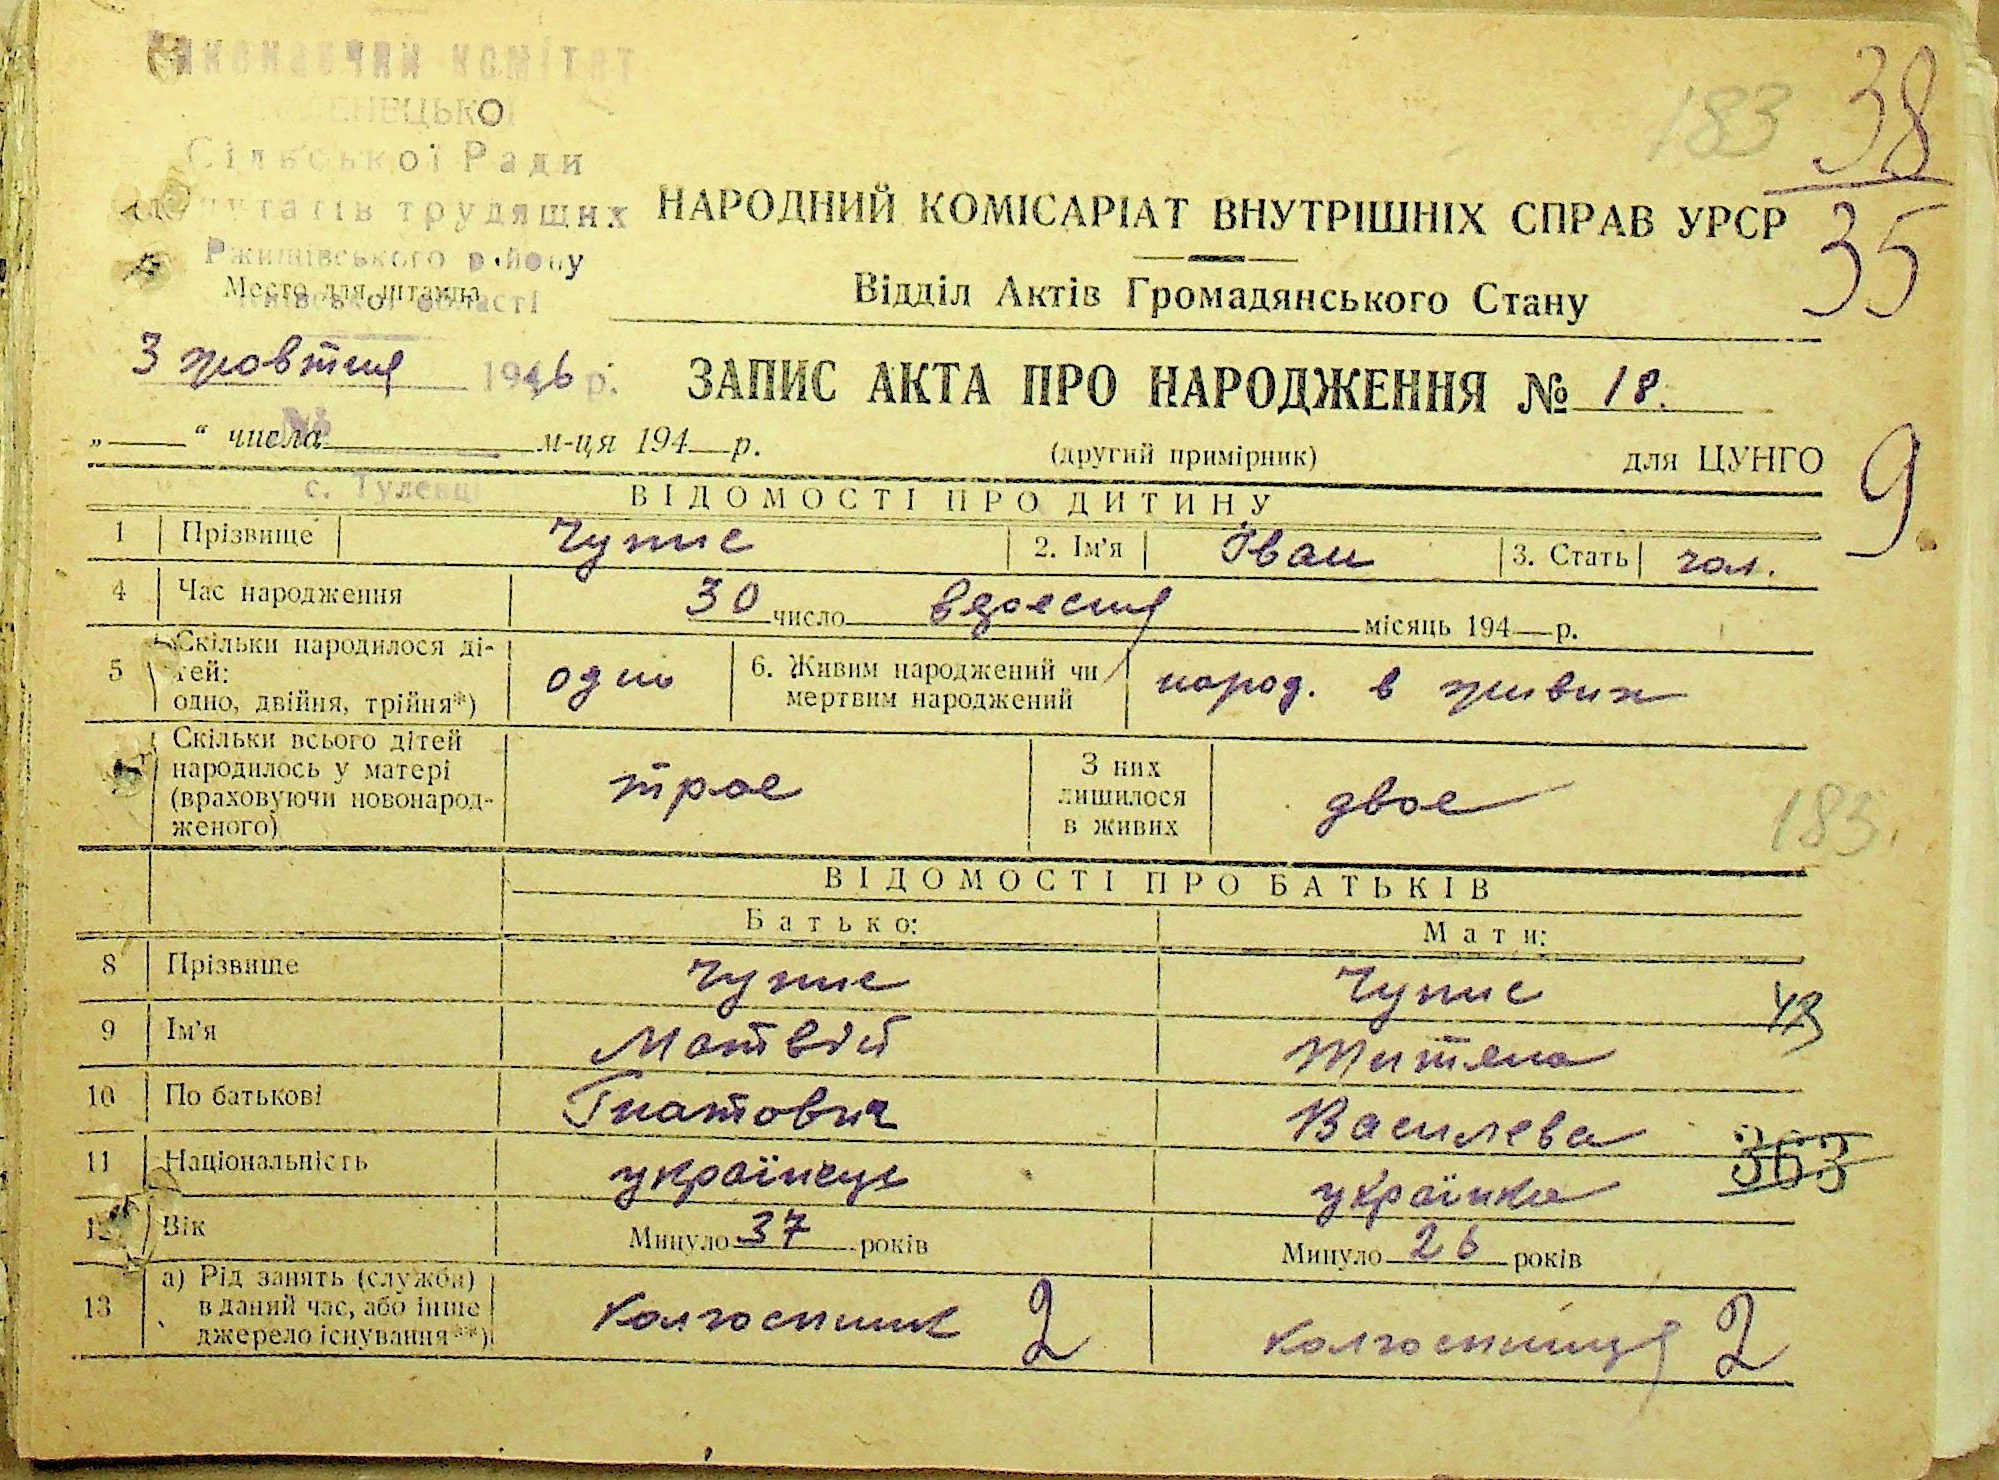 Виконавчий комітет
Сільської Ради
депутатів трудящих
Ржищівського району
Київської області
Место для штампа
3 жовтня 1946 р.
№
с. Тулецці
183
38
35
НАРОДНИЙ КОМІСАРІАТ ВНУТРІШНІХ СПРАВ УРСР
Відділ Актів Громадянського Стану
ЗАПИС АКТА ПРО НАРОДЖЕННЯ № 18.
„ “ числа м-ця 194 р. (другий примірник) для ЦУНГО
9.
ВІДОМОСТІ ПРО ДИТИНУ
1 Прізвище Чупис 2. Ім'я Іван 3. Стать чол.
4 Час народження 30 число вересня місяць 194 р.
5 Скільки народилося дітей: одно, двійня, трійня*) одно 6. Живим народжений чи мертвим народжений народ. в живих
Скільки всього дітей народилось у матері (враховуючи новонародженого) троє З них лишилося в живих двоє
183.
ВІДОМОСТІ ПРО БАТЬКІВ
Батько: Мати:
8 Прізвище Чупис Чупис
9 Ім'я Матвій Титяна
10 По батькові Гнатович Василева
11 Національність українець українка
363
12 Вік Минуло 37 років Минуло 26 років
13 а) Рід занять (служби) в даний час, або інше джерело існування**) колгоспник 2 колгоспниця 2